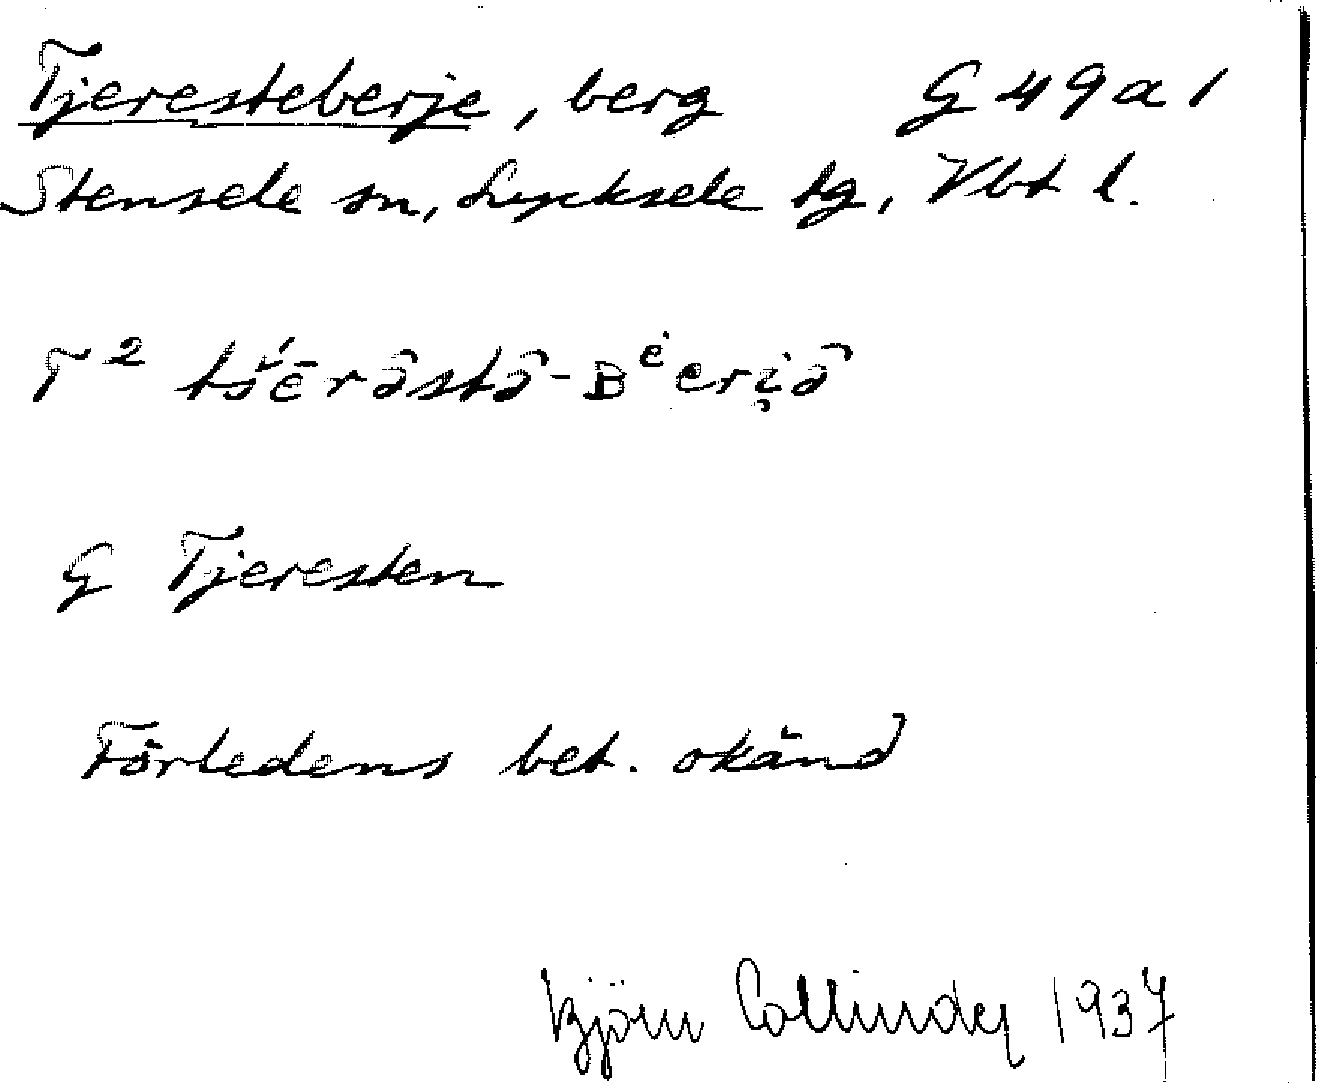 Tjeresteberje, berg G 49 a 1
Stensele sn, Lycksele tg, Vbt l.
T² tśērâstâ-ʙᵉeri̯â
G Tjeresten
Förledens bet. okänd
Björn Collinder 1937